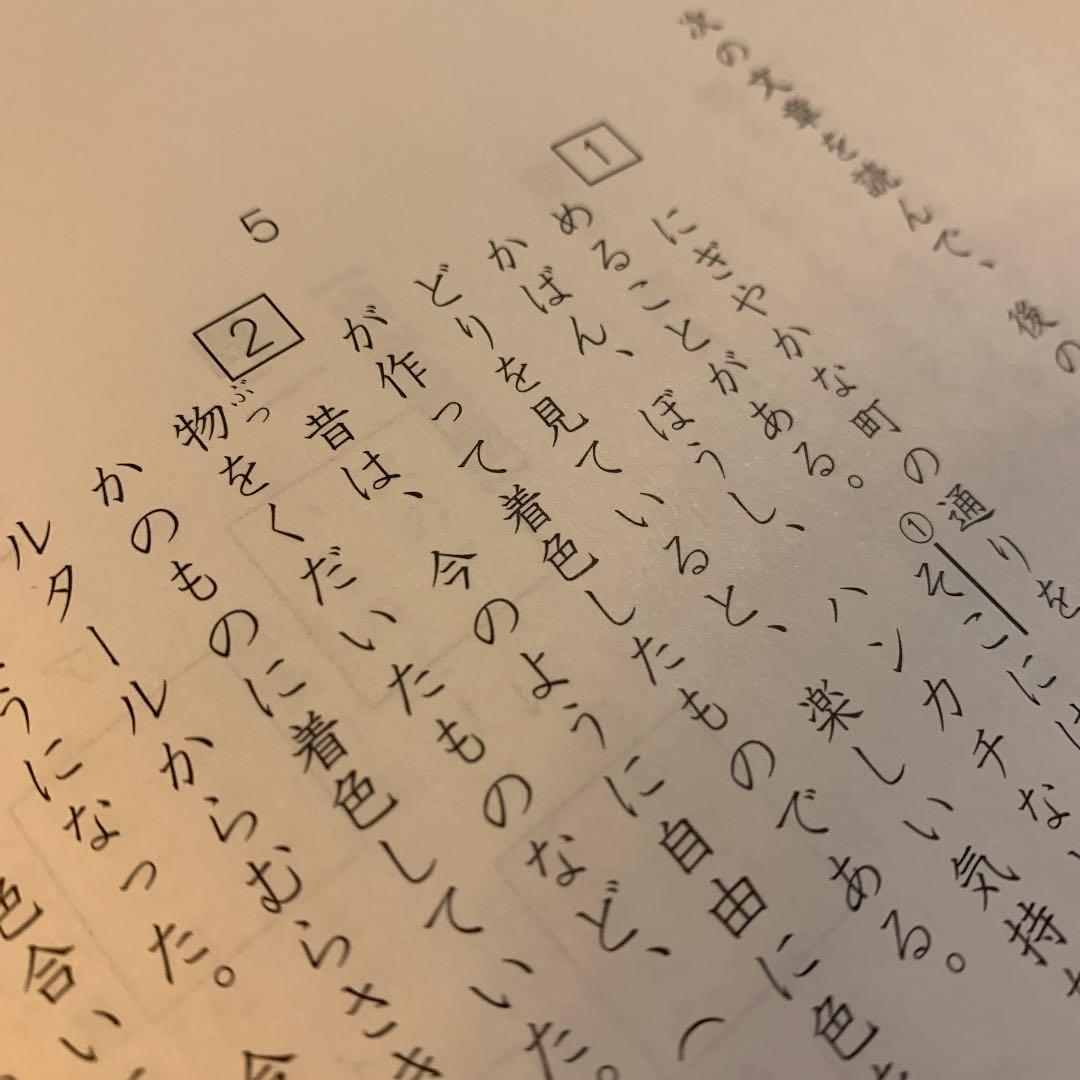 次の文章を読んで、後の
1 にぎやかな町の通りを
めることがある。①そこには
かばん、ぼうし、ハンカチな
どりを見ていると、楽しい気持ち
5
が作って着色したものである。
2 昔は、今のように自由に色
ぶっ
物をくだいたものなど、(
かのものに着色していた。
ルタールからむらさき
うになった。今
色合い